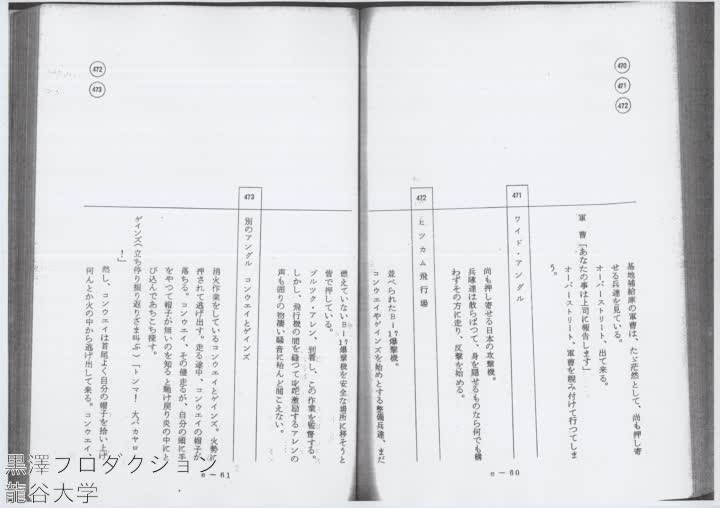 470
471
472
基地補給庫の軍曹は、たゞ茫然として、尚も押し寄
せる兵達を見ている。
オーバーストリート、出て来る。
軍　曹「あなたの事は上司に報告します」
オーバーストリート、軍曹を睨み付けて行つてしま
う。
471　ワイド・アングル
尚も押し寄せる日本の攻撃機。
兵隊達は散らばつて、身を隠せるものなら何でも構
わずその方に走り、反撃を始める。
472　ヒッカム飛行場
並べられたＢ－17爆撃機。
コンウエイやゲインズを始めとする整備兵達、まだ
e－60
472
473
燃えていないＢ－17爆撃機を安全な場所に移そうと
皆で押している。
ブルツク・アレン、到着し、この作業を監督する。
しかし、飛行機の間を縫つて叱咤激励するアレンの
声も廻りの物凄い騒音に殆んど聞こえない。
473　別のアングル　コンウエイとゲインズ
消火作業をしているコンウエイとゲインズ。火勢に
押されて逃げ出す。走る途中、コンウエイの帽子が
落ちる。コンウエイ、その儘走るが、自分の頭に手
をやつて帽子が無いのを知ると駈け戻り炎の中にと
び込んであちこち探す。
ゲインズ（立ち停り振り返りざま叫ぶ）「トンマ！　大バカヤロ
！」
然し、コンウエイは首尾よく自分の帽子を拾い上げ
何んとか火の中から逃げ出して来る。コンウエイ、
e－61
黒澤プロダクション
龍谷大学